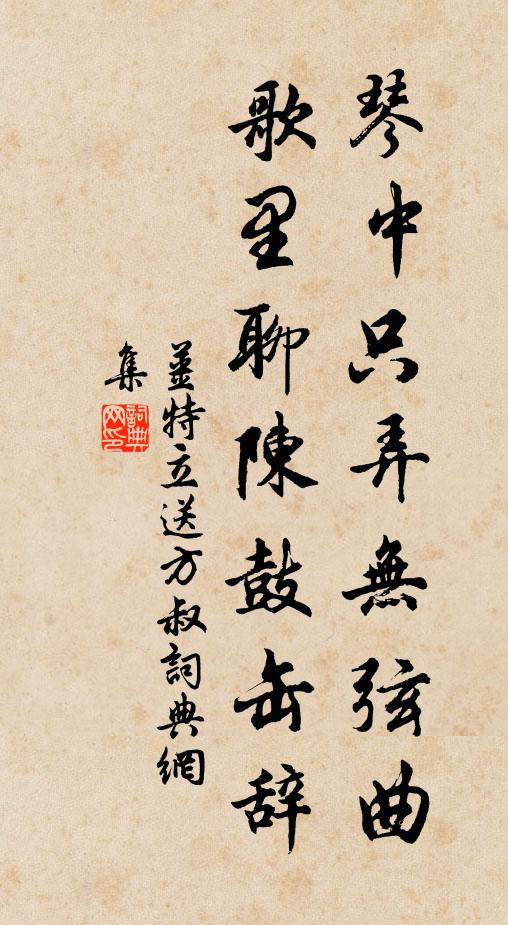 琴中只弄無弦曲
歌里聊陳鼓缶辞
姜特立送方叔詞典網
集
詞典
网印